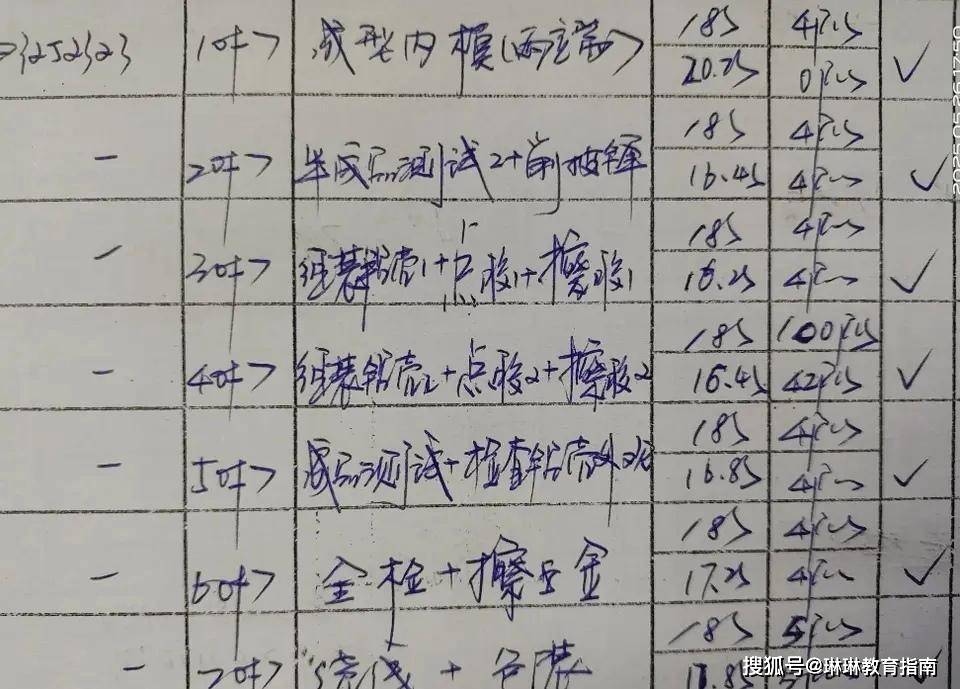 10f> 成型内模(两端) 18S 4PCS
20.2S 0PCS
20f> 半成品测试2+削披锋 18S 4PCS
16.4S 4PCS
30f> 组装铝壳1+点胶1+擦胶1 18S 4PCS
16.2S 4PCS
40f> 组装铝壳2+点胶2+擦胶2 18S 100PCS
16.4S 42PCS
50f> 成品测试+检查铝壳外观 18S 4PCS
16.8S 4PCS
60f> 全检+擦五金 18S 4PCS
17.2S 4PCS
70f> 绕线+包装 18S 5PCS
2025.05.26 17:50
搜狐号@琳琳教育指南